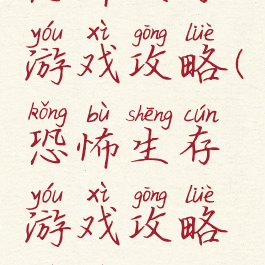 yóu xì gōng lüè
游戏攻略(
kǒng bù shēng cún
恐怖生存
yóu xì gōng lüè
游戏攻略